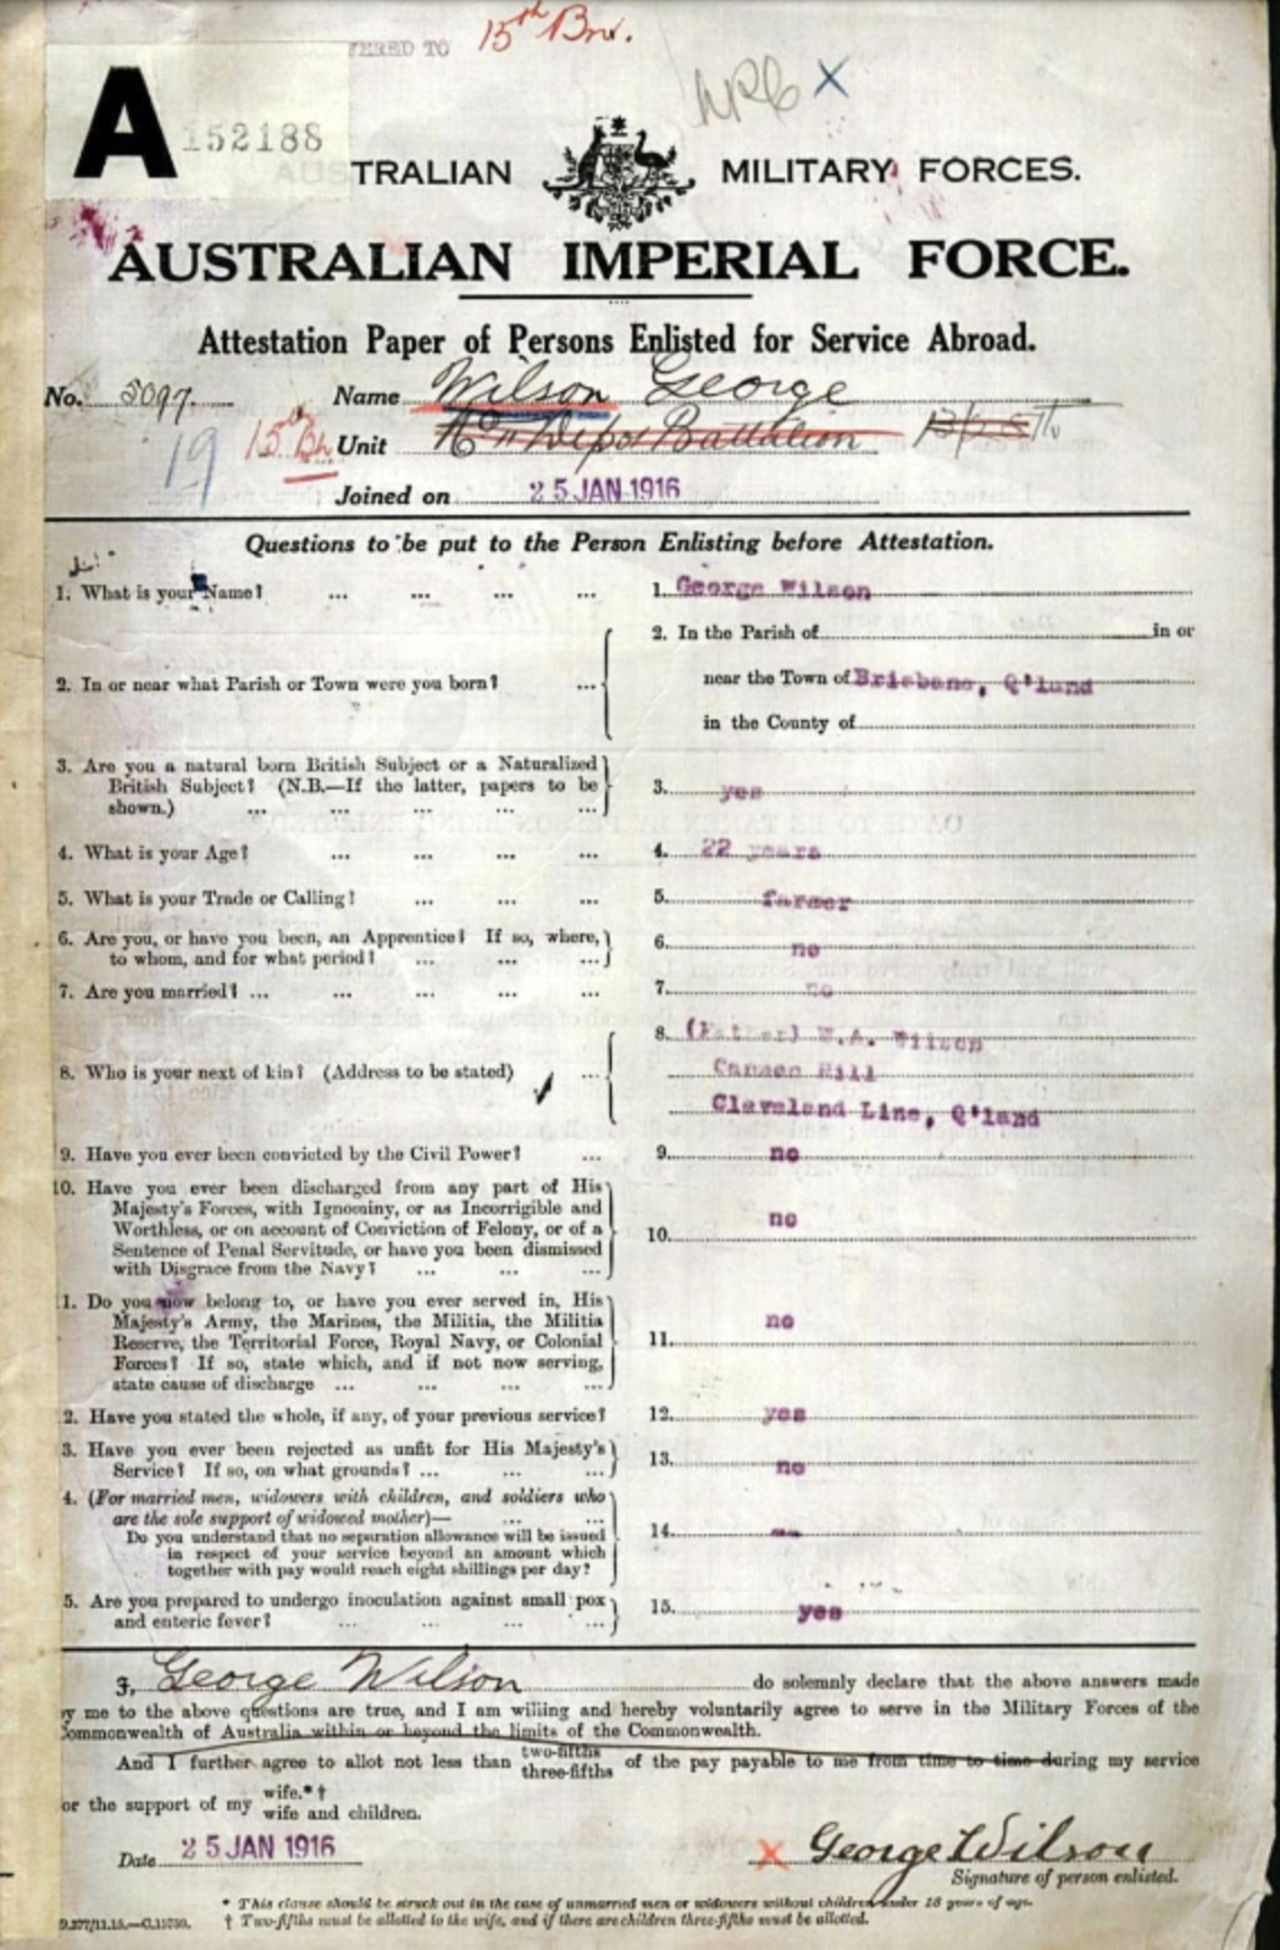 FERED TO 15th Bn.
A 152188
AUSTRALIAN MILITARY FORCES.
AUSTRALIAN IMPERIAL FORCE.
Attestation Paper of Persons Enlisted for Service Abroad.
No. 5097. Name Wilson George
19 15th Bn Unit Depot Battalion
Joined on 25 JAN 1916
Questions to be put to the Person Enlisting before Attestation.
1. What is your Name? ... ... ... ... 1. George Wilson
2. In the Parish of in or
2. In or near what Parish or Town were you born? ... near the Town of Brisbane, Q'land
in the County of
3. Are you a natural born British Subject or a Naturalized
British Subject? (N.B.—If the latter, papers to be 3. yes
shown.) ... ... ... ... ...
4. What is your Age? ... ... ... ... 4. 22 years
5. What is your Trade or Calling? ... ... ... 5. farmer
6. Are you, or have you been, an Apprentice? If so, where, 6. no
to whom, and for what period? ... ... ...
7. Are you married? ... ... ... ... ... 7. no
8. (Father) W.A. Wilson
8. Who is your next of kin? (Address to be stated) ... Cannon Hill
Cleveland Line, Q'land
9. Have you ever been convicted by the Civil Power? ... 9. no
10. Have you ever been discharged from any part of His
Majesty's Forces, with Ignominy, or as Incorrigible and
Worthless, or on account of Conviction of Felony, or of a 10. no
Sentence of Penal Servitude, or have you been dismissed
with Disgrace from the Navy? ... ... ...
1. Do you now belong to, or have you ever served in, His
Majesty's Army, the Marines, the Militia, the Militia
Reserve, the Territorial Force, Royal Navy, or Colonial 11. no
Forces? If so, state which, and if not now serving,
state cause of discharge ... ... ... ...
2. Have you stated the whole, if any, of your previous service? 12. yes
3. Have you ever been rejected as unfit for His Majesty's 13. no
Service? If so, on what grounds? ... ... ...
4. (For married men, widowers with children, and soldiers who
are the sole support of widowed mother)— ... ...
Do you understand that no separation allowance will be issued 14. --
in respect of your service beyond an amount which
together with pay would reach eight shillings per day?
5. Are you prepared to undergo inoculation against small pox 15. yes
and enteric fever? ... ... ... ...
I, George Wilson do solemnly declare that the above answers made
by me to the above questions are true, and I am willing and hereby voluntarily agree to serve in the Military Forces of the
Commonwealth of Australia within or beyond the limits of the Commonwealth.
And I further agree to allot not less than two-fifths three-fifths of the pay payable to me from time to time during my service
or the support of my wife.*† wife and children.
Date 25 JAN 1916 X George Wilson
Signature of person enlisted.
* This clause should be struck out in the case of unmarried men or widowers without children under 18 years of age.
† Two-fifths must be allotted to the wife, and if there are children three-fifths must be allotted.